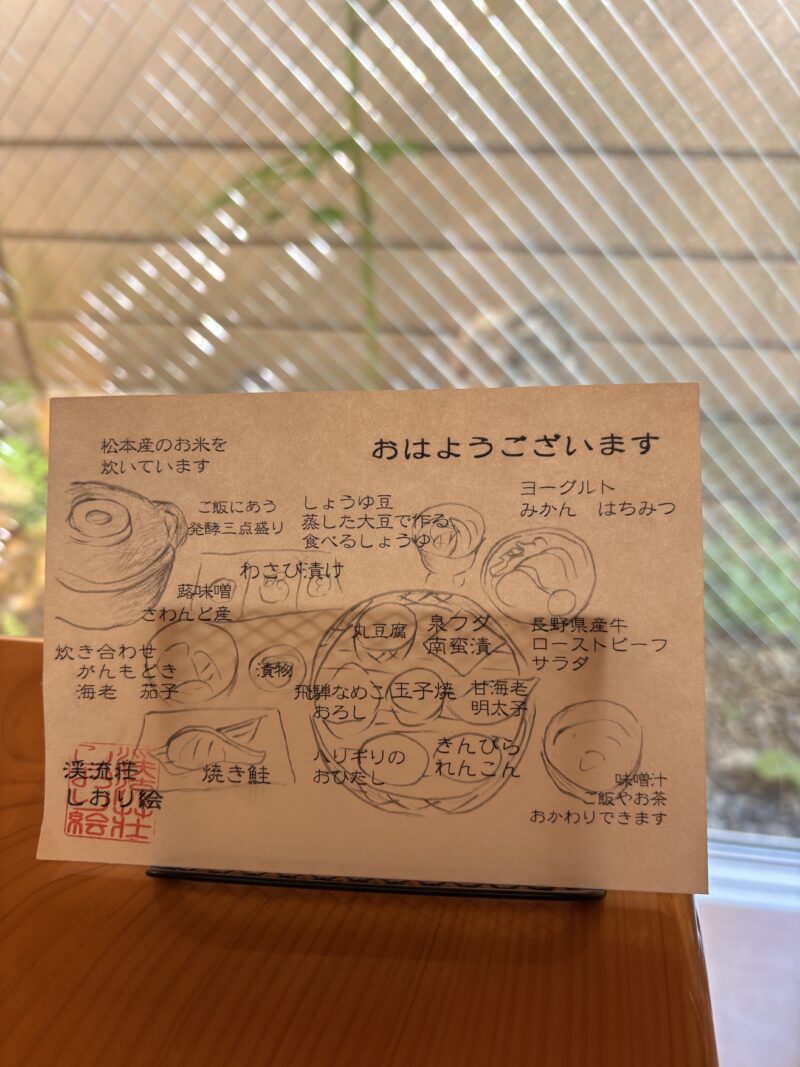 おはようございます
松本産のお米を
炊いています
ヨーグルト
みかん はちみつ
ご飯にあう
発酵三点盛り
しょうゆ豆
蒸した大豆で作る
食べるしょうゆ
わさび漬け
蕗味噌
さわんど産
丸豆腐
泉フダ
南蛮漬
長野県産牛
ローストビーフ
サラダ
炊き合わせ
がんもどき
海老 茄子
漬物
飛騨なめこ
おろし
玉子焼
甘海老
明太子
焼き鮭
ハリギリの
おひたし
きんぴら
れんこん
味噌汁
ご飯やお茶
おかわりできます
渓流荘
しおり絵
渓流荘
しおり絵